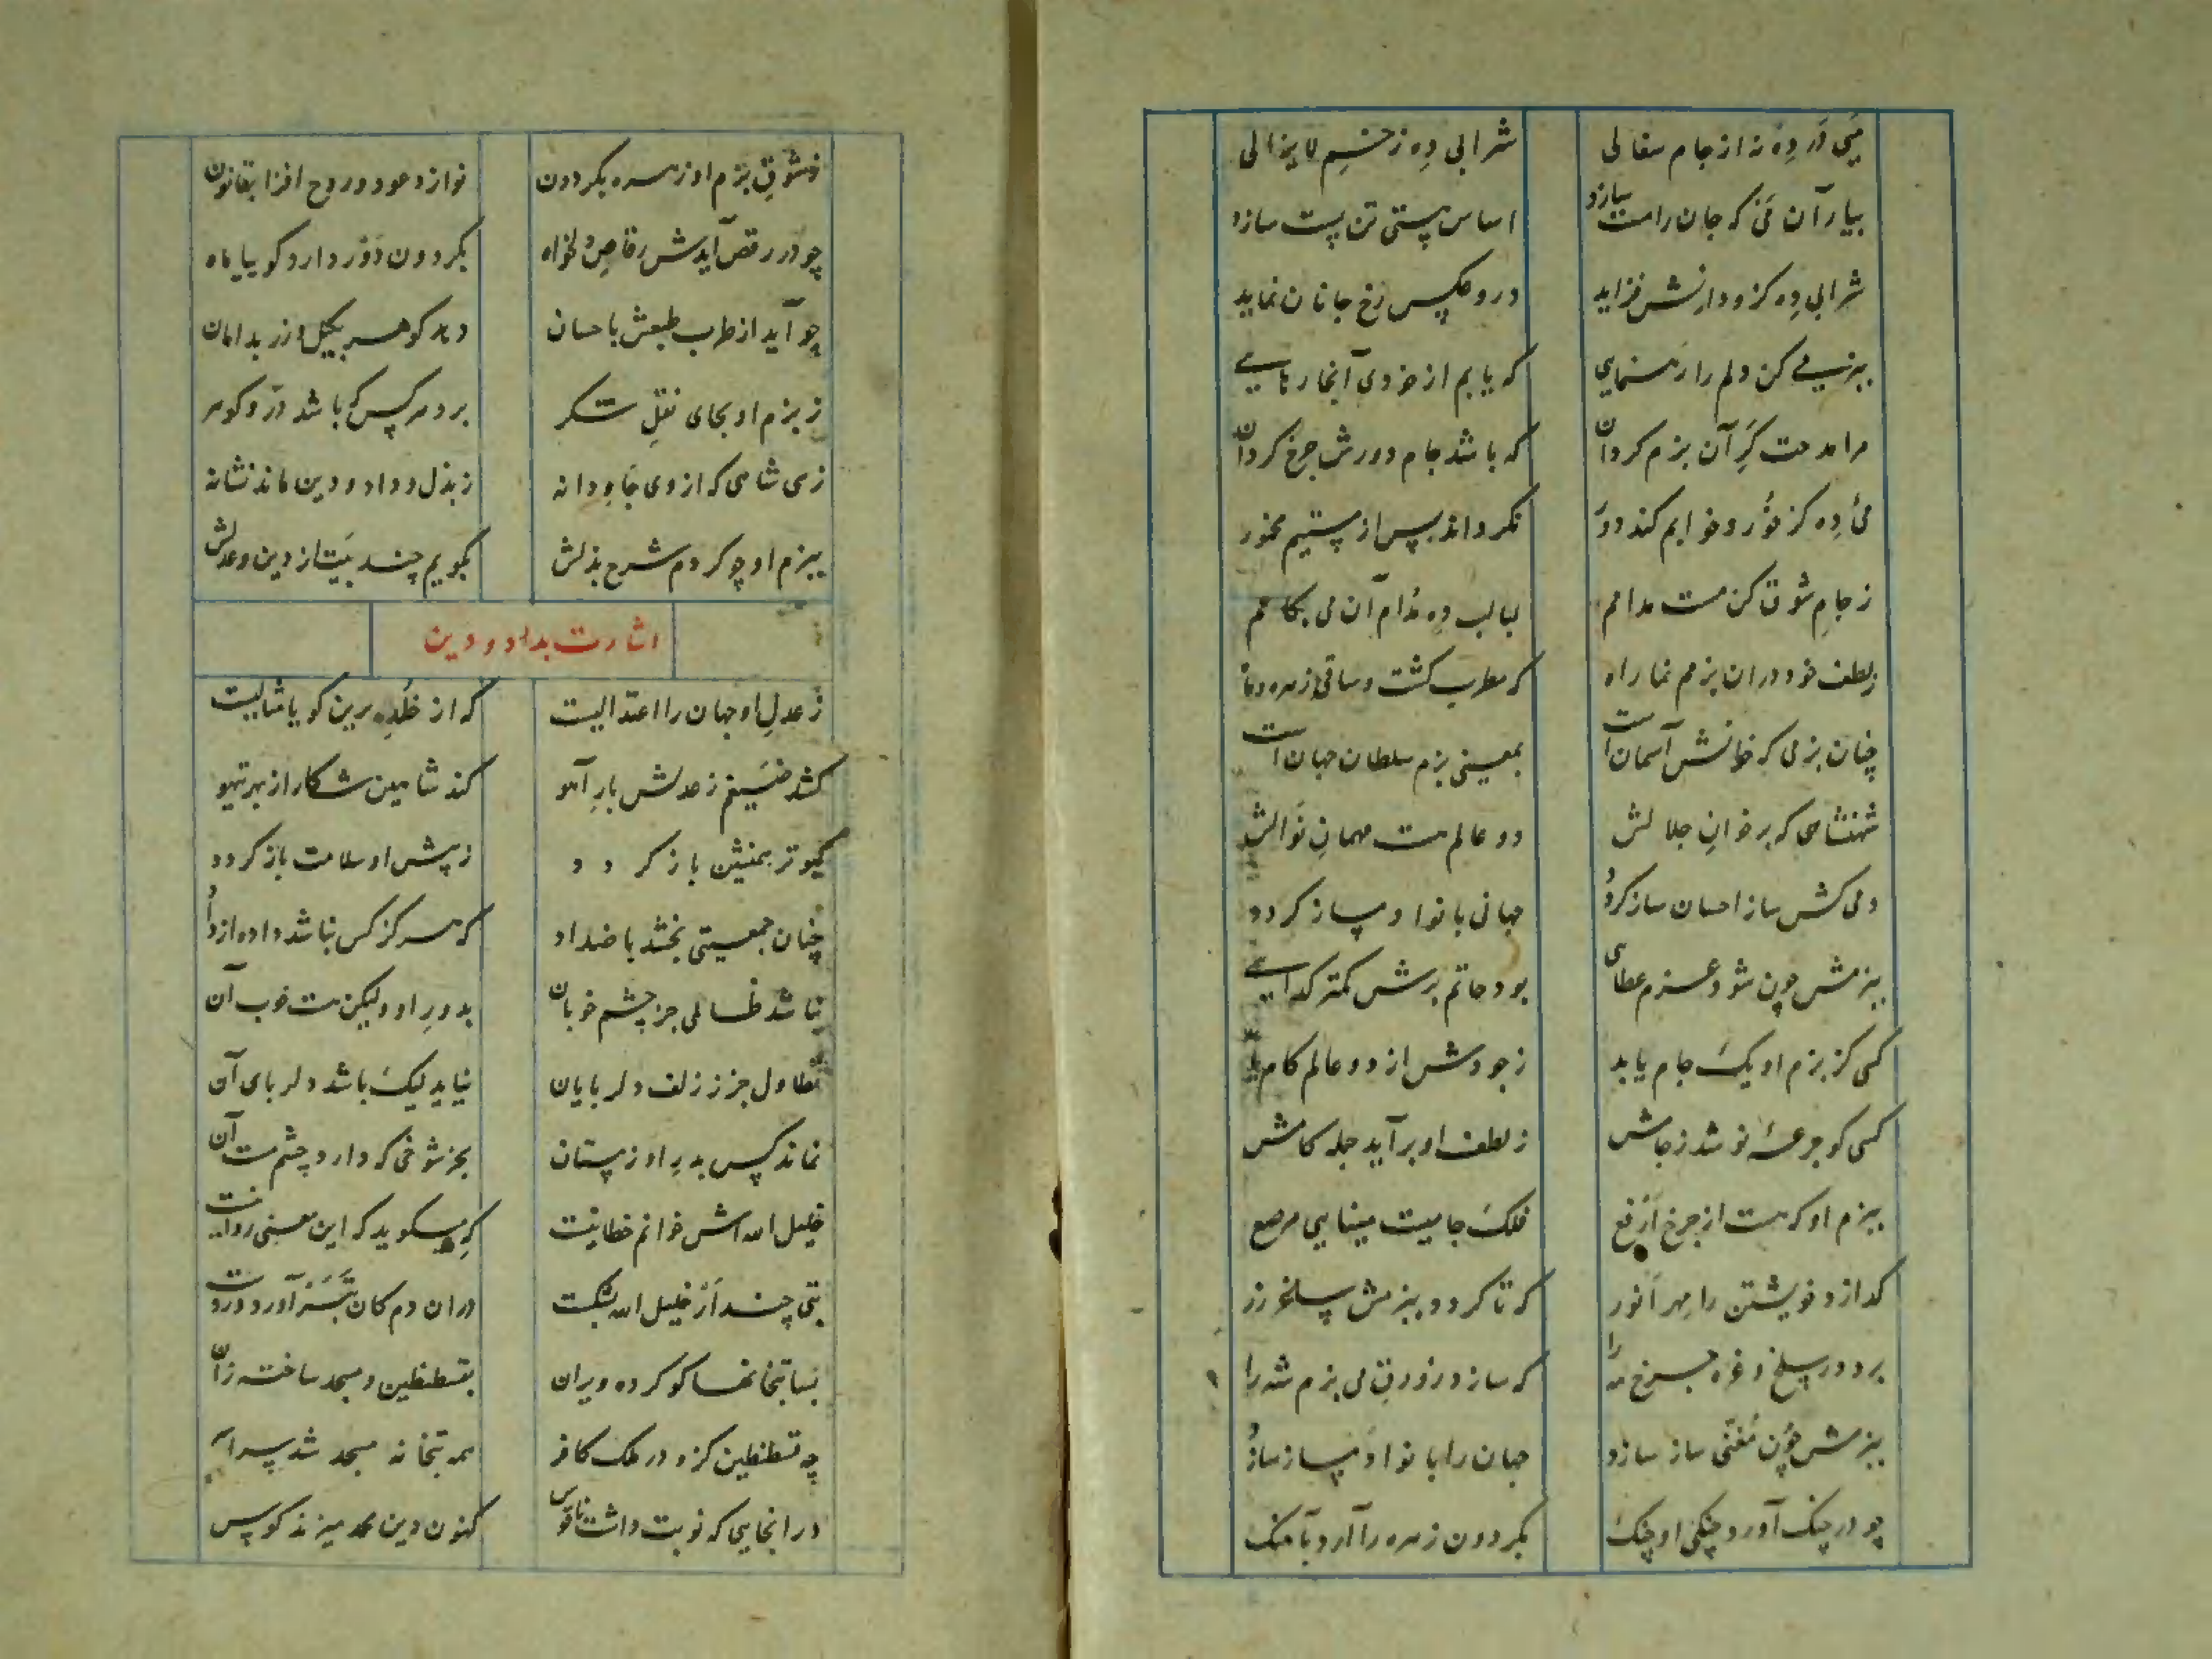 می در ده نه از جام سفالی شرابی ده ز خم لایزالی
بیار آن می که جان را مست سازد اساس هستی تن پست سازد
شرابی ده کزو دانش فزاید درو عکس رخ جانان نماید
ببزمی کن دلم را رهنمایی که یابم از خودی آنجا رهایی
مرا مدحت گر آن بزم گردان که باشد جام دورش چرخ گردان
می ده کز خود و خوابم کند دور نگرداند پس از مستیم مخمور
ز جام شوق کن مست مدامم لبالب ده مدام آن می بکامم
بلطف خود دران بزمم نما راه که مطرب گشت و ساقی زهره و ماه
چنان بزمی که خوانش آسمان است بمعنی بزم سلطان جهان است
شهنشاهی که بر خوان جلالش دو عالم هست مهمان نوالش
دمی کش ساز احسان ساز گردد جهانی با نوا و ساز گردد
ببزمش چون شود عزم عطای بود حاتم برش کمتر گدایی
کسی کز بزم او یک جام یابد ز جودش از دو عالم کام یابد
کسی کو جرعهٔ نوشد ز جامش ز لطف او برآید جمله کامش
ببزم او که هست از چرخ ارفع فلک جامیست مینایی مرصع
گدازد خویشتن را مهر انور که تا گردد ببزمش ساغر زر
برد در سلخ و غره چرخ مه را که سازد زورق می بزم شه را
ببزمش چون مغنی ساز سازد جهان را با نوا و ساز سازد
چو در چنگ آورد چنگی او چنگ بگردون زهره را آرد بآهنگ
ز شوق بزم او زهره بگردون نوازد عود و روح افزا بقانون
چو در رقص آیدش رقاص دلخواه بگردون دور دارد گوییا ماه
چو آید از طرب طبعش باحسان دهد گوهر بکیل و زر بدامان
ز بزم او بجای نقل شکر برد هر کس که باشد در و گوهر
زهی شاهی که از وی جاودانه ز بذل و داد و دین ماند نشانه
ببزم او چو کردم شرح بذلش بگویم چند بیت از دین و عدلش
اشارت بداد و دین
ز عدل او جهان را اعتدالیست که از خلد برین گویا مثالیست
کشد ضیغم ز عدلش بار آهو کند شاهین شکار از بهر تیهو
کبوتر همنشین باز گردد ز پیش او سلامت باز گردد
چنان جمعیتی بخشد باضداد که هرگز کس نباشد داده از داد
نباشد ظالمی جز چشم خوبان بدور او ولیکن هست خوب آن
تطاول جز ز زلف دلربایان نیاید لیک باشد دلربای آن
نماند کس بدور او ز مستان بجز شوخی که دارد چشم مست آن
خلیل الله اش خوانم خطا نیست که میگوید که این معنی روا نیست
بتی چند ار خلیل الله بشکست دران دم کان تبر آورد در دست
بسا بتخانها کو کرده ویران بقسطنطین و مسجد ساخته زان
چه قسطنطین کزو در ملک کافر همه بتخانه مسجد شد سراسر
در آنجایی که نوبت داشت ناقوس کنون دین محمد میزند کوس